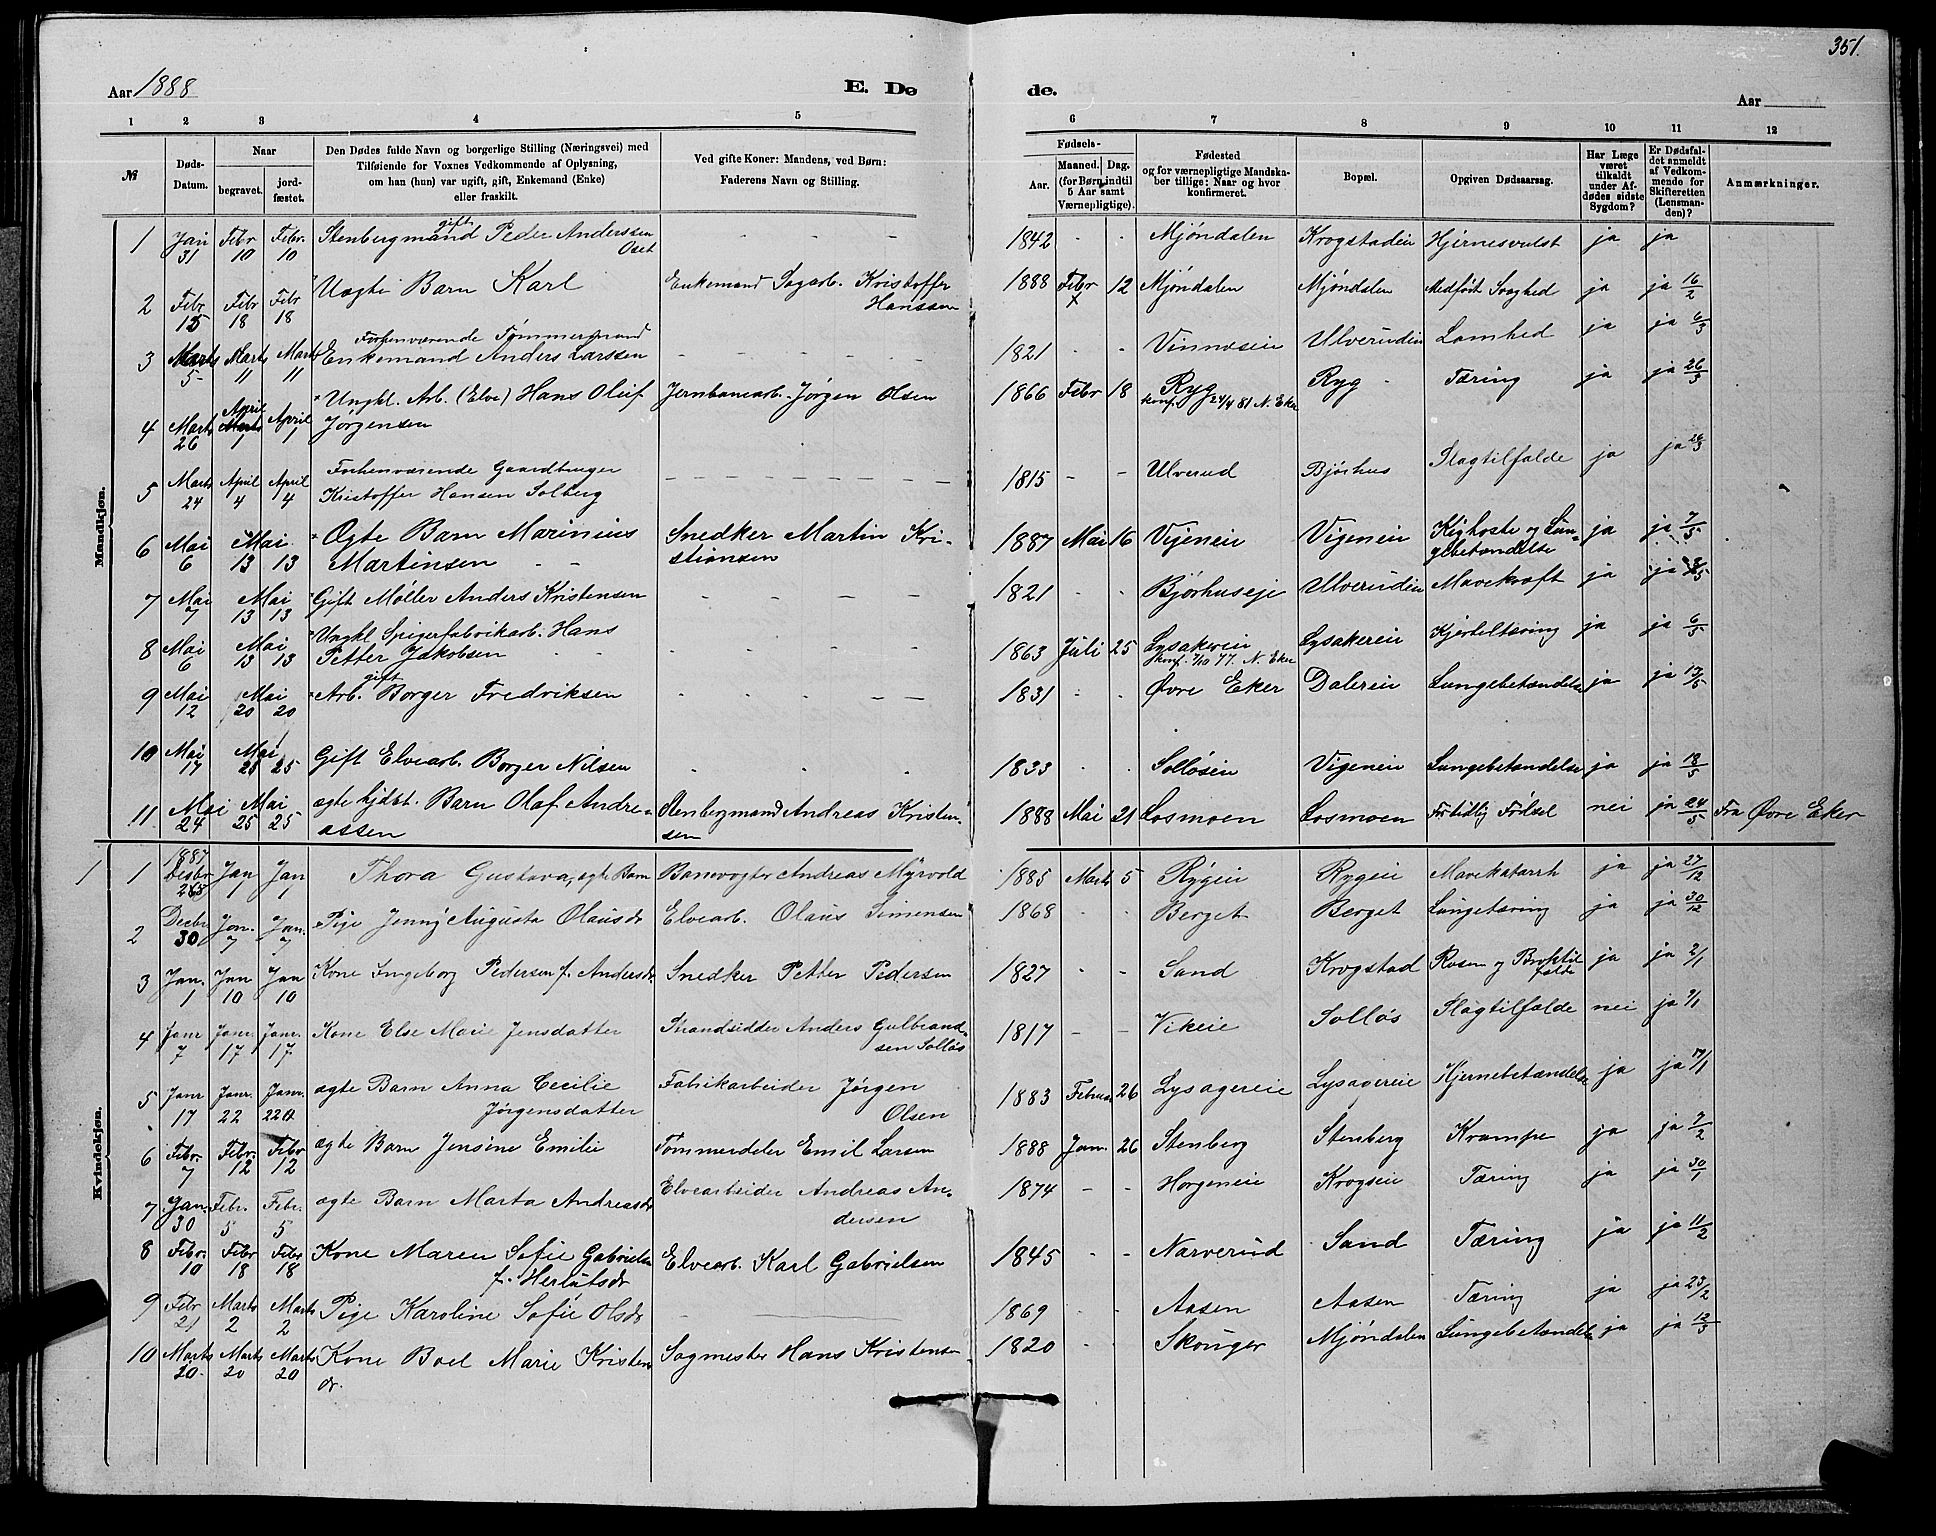 351.
Aar 1888 E. Dø de. Aar
1 2 3 4 5 6 7 8 9 10 11 12
№ Døds-Datum. Naar begravet. jordfæstet. Den Dødes fulde Navn og borgerlige Stilling (Næringsvei) med Tilføiende for Voxnes Vedkommende af Oplysning, om han (hun) var ugift, gift, Enkemand (Enke) eller fraskilt. Ved gifte Koner: Mandens, ved Børn: Faderens Navn og Stilling. Fødsels- Aar. Maaned. Dag. (for Børn indtil 5 Aar samt Værnepligtige). Fødested og for værnepligtige Mandskaber tillige: Naar og hvor konfirmeret. Bopæl. Opgiven Dødsaarsag. Har Læge været tilkaldt under Afdødes sidste Sygdom? Er Dødsfaldet anmeldt af Vedkommende for Skifteretten (Lensmanden)? Anmærkninger.
Mandkjøn.
1 Jan 31 Febr 10 Febr. 10 Stenbergmand gift Peder Anderssen Oset - - - 1842 - - Mjøndalen Krogstadeie Hjernesvulst ja ja
2 Febr 15 Febr 18 Febr 18 Uægte Barn Karl Enkemand Sagarb. Kristoffer Hanssen 1888 Febr x 12 Mjøndalen Mjøndalen Medfødt Svaghed ja ja 16/2
3 Marts 5 Marts 11 Marts 11 Forhenværende Tømmermand Enkemand Anders Larssen - - - - 1821 - - Vinnæseie Ulverudeie Lamhed ja ja 6/3
4 Marts 26 April 1 April 1 Ungkl. Arb. (Elve) Hans Oluf Jørgensen Jernbanearb. Jørgen Olsen 1866 Febr 18 Ryg konf. 24/4 81 N. Eker Ryg Tæring ja ja 26/3
5 Marts 24 April 4 April 4 Forhenværende Gaardbruger Kristoffer Hansen Solberg - - - - 1815 - - Ulverud Bjørhus Slagtilfælde ja ja 26/3
6 Mai 6 Mai 13 13 Ægte Barn Marinius Martinsen - - Snedker Martin Kristiansen 1887 Mai 16 Vigeneie Vigeneie Kighoste og Lungebetændelse ja ja 7/5
7 Mai 7 Mai 13 13 Gift Møller Anders Kristensen - - - - 1821 - - Bjørhuseje Ulverudeie Mavekræft ja ja 8/5
8 Mai 6 Mai 13 13 Ungkl Spigerfabrikarb. Hans Petter Jakobsen - - 1863 Juli 25 Lysakereie konf. 7/10 77. N. Eker Lysakereie Kjerteltæring ja ja 6/5
9 Mai 12 Mai 20 20 Arb. gift Borger Fredriksen - - - - 1831 - - Øvre Eker Dalereie Lungebetændelse ja ja 13/5
10 Mai 17 Mai 25 25 Gift Elvearb. Borger Nilsen - - - 1833 - - Solløseie Vigeneie Lungebetændelse ja ja 18/5
11. Mai 24 Mai 25 25 ægte hjdbt. Barn Olaf Andreassen Stenbergmand Andreas Kristensen 1888 Mai 21 Losmoen Losmoen Fortidlig Fødsel nei ja 24/5 Fra Øvre Eker
Kvindekjøn.
1 1 1887 Desbr 26 Jan 1 Jan 1 Thora Gustava, ægte Barn Banevogter Andreas Myrvold 1885 Marts 5 Rygeie Rygeie Mavekatarrh ja ja 27/12
2 Decbr 30 Jan. 7 Jan. 7 Pige Jenny Augusta Olausdr Elvearb. Olaus Simensen 1868 - - Berget Berget Lungetæring ja ja 30/12
3 Jan. 1 Jan 10 Jan 10 Kone Ingeborg Pedersen f. Andersdr Snedker Petter Pedersen 1827 - - Sand Krogstad Rosen og Broktilfælde ja ja 2/1
4 Janr 7 Janr. 17 Janr. 17. Kone Else Marie Jensdatter Strandsidder Anders Gulbrandsen Solløs 1817 - - Vikeie Solløs Slagtilfælde nei ja 9/1
5 Janr 17 Janr. 22 Janr. 22 ægte Barn Anna Cecilie Jørgensdatter Fabrikarbeider Jørgen Olsen 1883 Februar 26 Lysagereie Lysagereie Hjernebetændelse ja ja 17/1
6 Febr. 7 Febr. 12 Febr 12 ægte Barn Jensine Emilie Tømmerdeler Emil Larsen 1888 Jan. 26 Stenberg Stenberg Krampe ja ja 7/2
7 Jan. 30 Febr. 5 Febr. 5 ægte Barn Marta Andreasdr Elvearbeider Andreas Andersen 1874 - - Horgeneie Krogseie Tæring ja ja 30/1
8 Febr. 10 Febr 18 Febr 18 Kone Maren Sofie Gabrielsen f. Herlufsdr Elvearb. Karl Gabrielsen 1845 - - Narverud Sand Tæring ja ja 11/2
9 Febr 21 Marts 2 Marts 2 Pige Karoline Sofie Olsdr - - - 1869 - - Aasen Aasen Tæring ja ja 23/2
10 Marts 20. Marts 20 Marts 20 Kone Boel Marie Kristensdr. Sagmester Hans Kristensen 1820 - - Skouger Mjøndalen Lungebetændelse ja ja 12/3